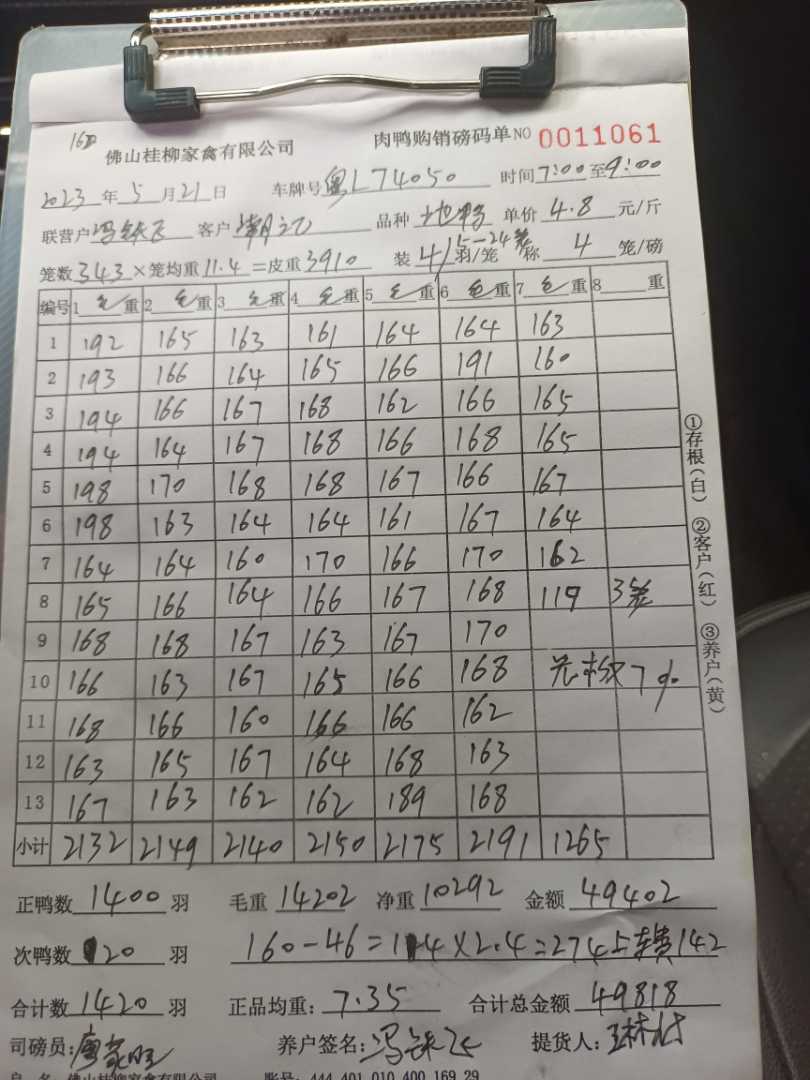 162
佛山桂柳家禽有限公司 肉鸭购销磅码单NO 0011061
2023年5月21日 车牌号粤L74050 时间7:00至9:00
联营户冯 客户潮记 品种 单价4.8元/斤
笼数343×笼均重11.4=皮重3910 装4/5-24笼羽/笼 称4笼/磅
编号 1毛重 2毛重 3毛重 4毛重 5毛重 6毛重 7毛重 8重
1 192 165 163 161 164 164 163
2 193 166 164 165 166 191 160
3 194 166 167 168 162 166 165
4 194 164 167 168 166 168 165
5 198 170 168 168 167 166 167
6 198 163 164 164 161 167 164
7 164 164 160 170 166 170 162
8 165 166 164 166 167 168 119 3笼
9 168 168 167 163 167 170
10 166 163 167 165 166 168 7%
11 168 166 160 166 166 162
12 163 165 167 164 168 163
13 167 163 162 162 189 168
小计 2132 2149 2140 2150 2175 2191 1265
正鸭数1400羽 毛重14202 净重10292 金额49402
次鸭数20羽 160-46=114×2.4=274 142
合计数1420羽 正品均重:7.35 合计总金额49818
司磅员: 养户签名:冯 提货人:
户 名 佛山桂柳家禽有限公司 账号:444 401 010 400 169 29
①存根(白) ②客户(红) ③养户(黄)